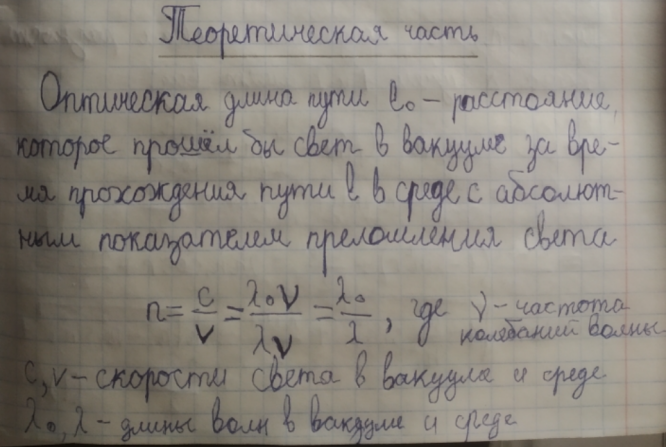 Теоретическая часть
Оптическая длина пути l₀ – расстояние,
которое прошёл бы свет в вакууме за вре-
мя прохождения пути l в среде с абсолют-
ным показателем преломления света
n = c/v = λ₀ν/λν = λ₀/λ, где ν – частота
колебаний волны
c, v – скорости света в вакууме и среде
λ₀, λ – длины волн в вакууме и среде